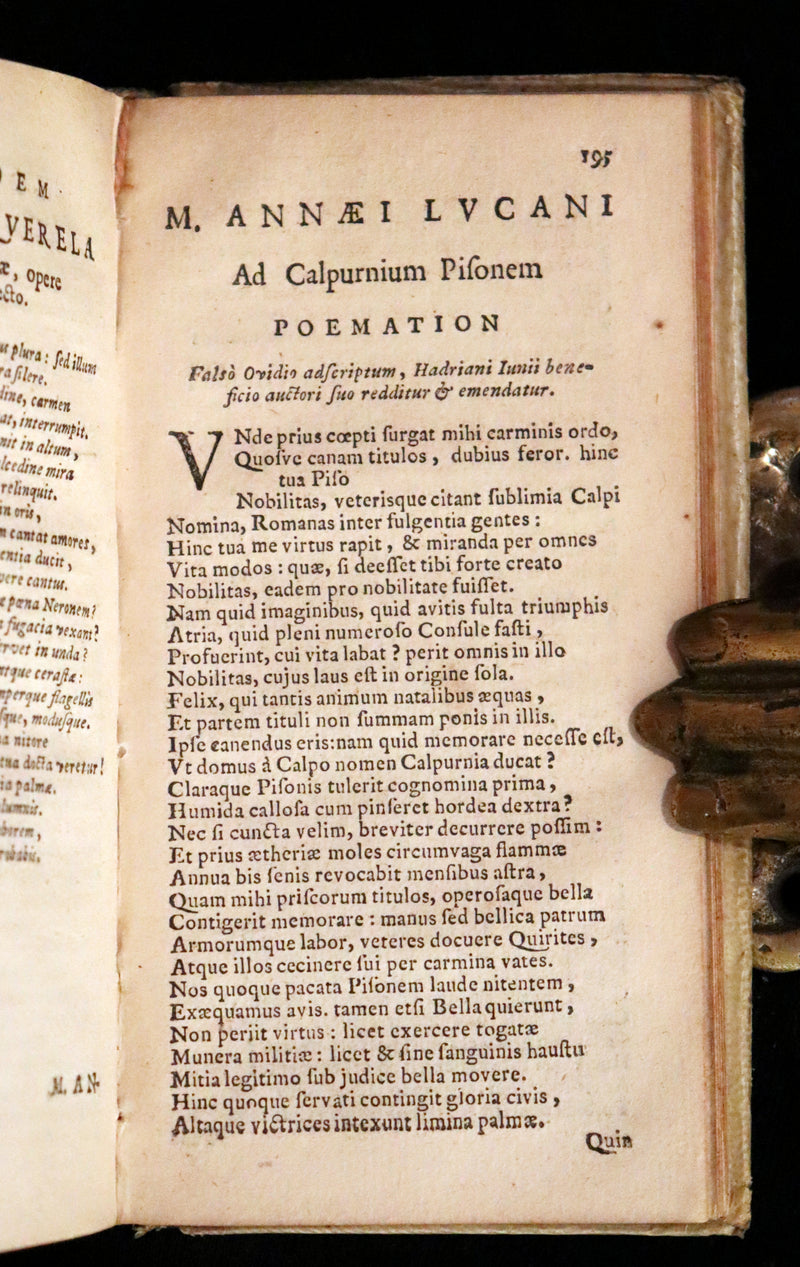 EM.
VERELA
æ, opere
cto.
plura: ſed illum
ſilere.
carmen
interrumpit.
in altum,
mira
relinquit.
in oris,
cantat amores,
ducit,
cantus.
pœna Neronem?
fugacia vexant?
in unda?
ceraſtæ:
flagellis
moduſque.
nitore
docta veretur!
palmæ.
M. AN-
195
M. ANNÆI LVCANI
Ad Calpurnium Piſonem
POEMATION
Falsò Ovidio adſcriptum, Hadriani Iunii bene-
ficio auctori ſuo redditur & emendatur.
VNde prius cœpti ſurgat mihi carminis ordo,
Quoſve canam titulos, dubius feror. hinc
tua Piſo
Nobilitas, veteriſque citant ſublimia Calpi
Nomina, Romanas inter fulgentia gentes:
Hinc tua me virtus rapit, & miranda per omnes
Vita modos: quæ, ſi deeſſet tibi forte creato
Nobilitas, eadem pro nobilitate fuiſſet.
Nam quid imaginibus, quid avitis fulta triumphis
Atria, quid pleni numeroſo Conſule faſti,
Profuerint, cui vita labat? perit omnis in illo
Nobilitas, cujus laus eſt in origine ſola.
Felix, qui tantis animum natalibus æquas,
Et partem tituli non ſummam ponis in illis.
Ipſe canendus eris: nam quid memorare neceſſe eſt,
Vt domus à Calpo nomen Calpurnia ducat?
Claraque Piſonis tulerit cognomina prima,
Humida calloſa cum pinſeret hordea dextra?
Nec ſi cuncta velim, breviter decurrere poſſim:
Et prius ætheriæ moles circumvaga flammæ
Annua bis ſenis revocabit menſibus aſtra,
Quam mihi priſcorum titulos, operoſaque bella
Contigerit memorare: manus ſed bellica patrum
Armorumque labor, veteres docuere Quirites,
Atque illos cecinere ſui per carmina vates.
Nos quoque pacata Piſonem laude nitentem,
Exæquamus avis. tamen etſi Bella quierunt,
Non periit virtus: licet exercere togatæ
Munera militiæ: licet & ſine ſanguinis hauſtu
Mitia legitimo ſub judice bella movere.
Hinc quoque ſervati contingit gloria civis,
Altaque victrices intexunt limina palmæ.
Quin